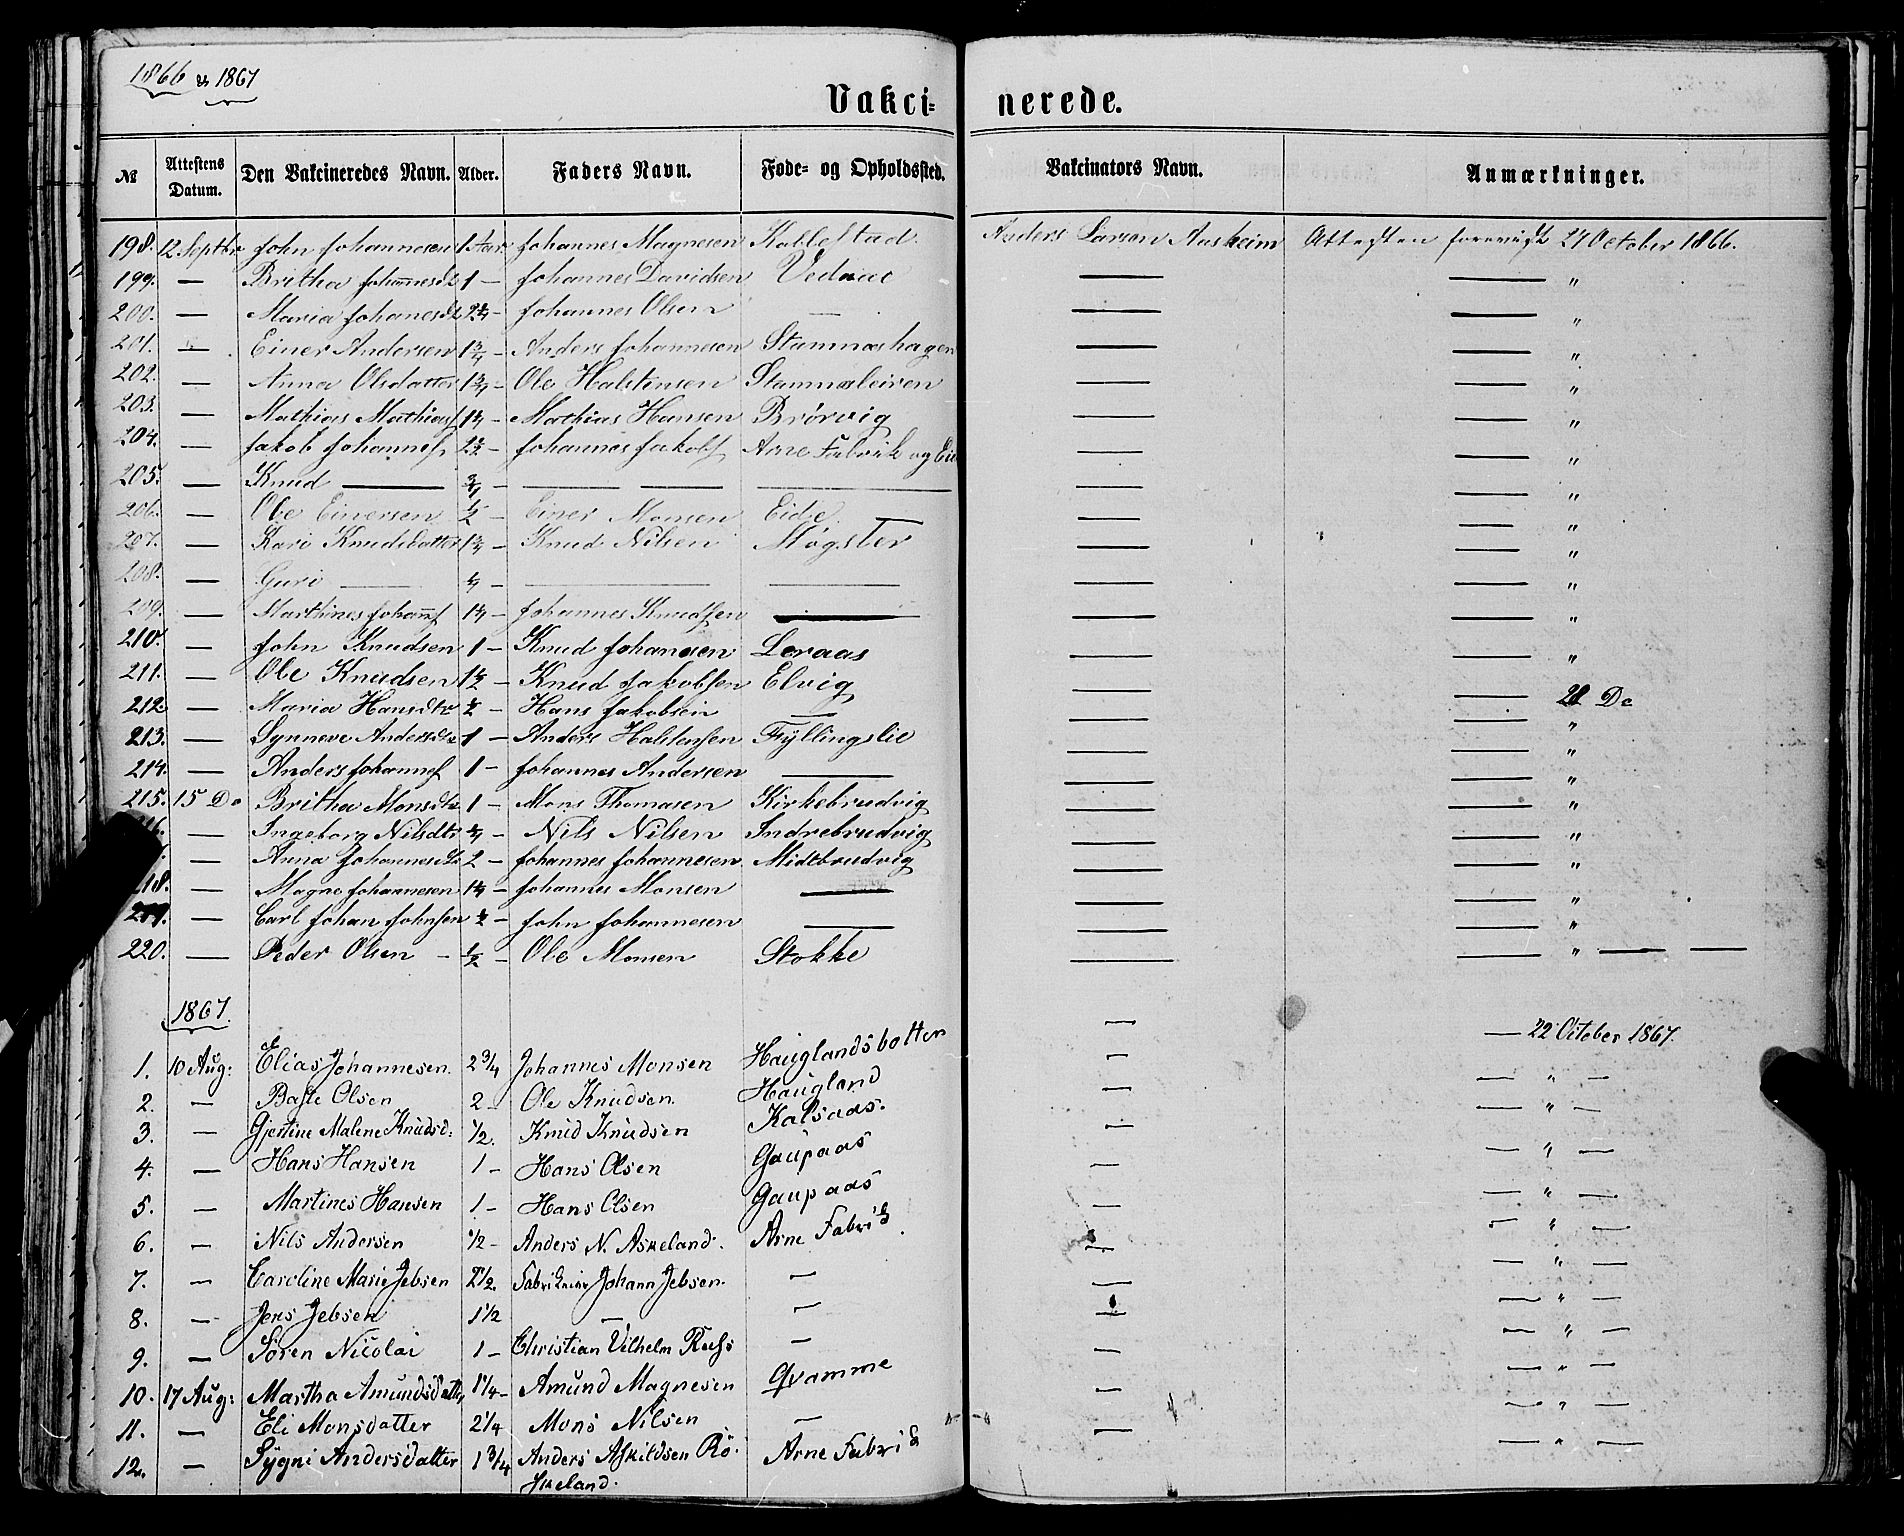 1866 & 1867
Vakci-nerede.
№ Attestens Datum. Den Vakcineredes Navn. Alder. Faders Navn. Føde- og Opholdssted. Vakcinators Navn. Anmærkninger.
198. 12 Septbr John Johannesen 1 Aar Johannes Magnesen Kallestad. Anders Larsen Aasheim Attesten forevist 27 October 1866.
199. — Britha Johannesdtr 1 — Johannes Davidsen Vedaae — — "
200. — Maria Johanesdtr 2¼ — Johannes Olsen — — — "
201. — Einer Andersen 1¾ — Anders Johannesen Stamnæshagen — — "
202. — Anna Olsdatter 1¾ — Ole Halstensen Stamnæsleiren — — "
203. — Mathias Mathias 1¼ — Mathias Hansen Brørvig — — "
204. — Jakob Johannes 2½ — Johannes Jakobs Arne Fabrik og Eide — — "
205. — Knud — ¾ — — — — — — "
206. — Ole Einersen ½ — Einer Monsen Eide — — — "
207. — Kari Knudsdatter 1¾ — Knud Nilsen Møgster — — "
208. — Guri — ¼ — — — — — "
209. — Marthines Johans 1¼ — Johannes Knudsen — — — "
210. — John Knudsen 1 — Knud Johannesen Leraas — — "
211. — Ole Knudsen 1½ — Knud Jakobsen Elvig — — 28 Do
212. — Maria Hansdtr ½ — Hans Jakobsen — — — "
213. — Synneve Andersdtr 1 — Anders Halstensen Fyllingslie — — "
214. — Anders Johannes 1 — Johannes Andersen — — — "
215. 15 Do Britha Monsdtr 1 — Mons Thomasen Kirkebrudvig — — "
— Ingeborg Nilsdtr ¾ — Nils Nilsen Indrebrudvig — — "
— Anna Johannesdtr 2 — Johannes Johannesen Midtbrudvig — — "
218. — Magne Johannesen 1¼ — Johannes Monsen — — — "
219. — Carl Johan Johnsen ½ — John Johannesen — — — "
220. — Peder Olsen — ½ — Ole Monsen Stokke — — " — —
1867.
1. 10 Aug: Elias Johannesen. 2¾ Johannes Monsen Hauglandsbotten — — 22 October 1867.
2. — Baste Olsen 2 — Ole Knudsen. Haugland — — " —
3. — Gjertine Malene Knudsd: ½. Knud Knudsen Kalsaas. — — " —
4. — Hans Hansen 1 — Hans Olsen Gaupaas — — " —
5. — Martines Hansen 1 — Hans Olsen Gaupaas — — " —
6. — Nils Andersen ½ — Anders N. Askeland. Arne Fabrik — — " —
7. — Caroline Marie Jebsen 2½. Fabrikeier Johann Jebsen. — — — " —
8. — Jens Jebsen 1½ — — — — " —
9. — Søren Nicolai 1 — Christian Vilhelm — — — " —
10. 17 Aug: Martha Amundsdatter 1¼ — Amund Magnesen Qvamme — — " —
11. — Eli Monsdatter 2¼ Mons Nilsen — — — " —
12. — Sygni Andersdatter 1¾ Anders Askildsen Rø- Arne Fabrik — — " —
skeland.